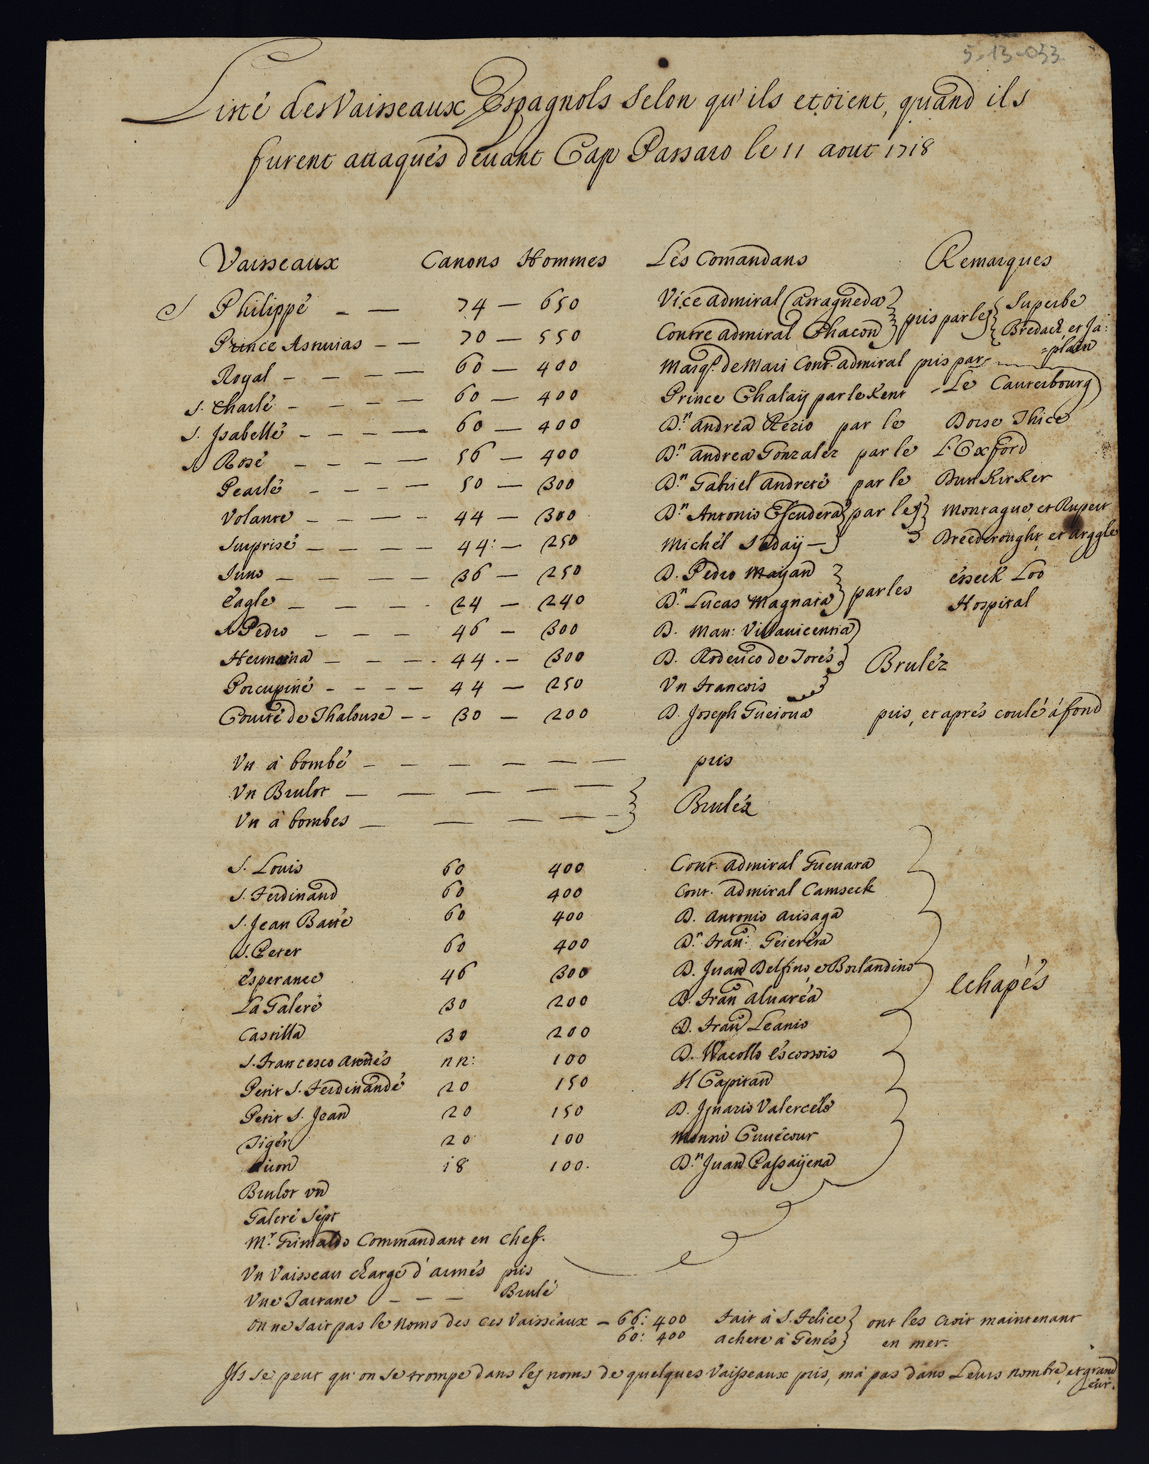 5-13-033
Listé des Vaisseaux Espagnols Selon qu'ils etoient, quand ils
furent attaqués devant Cap Passaro le 11 aout 1718
Vaisseaux Canons Hommes Les Comandans Remarques
S Philippé — — 74 — 650 Vice admiral Castagneda } pris par les { Superbe
Prince Asturias — — 70 — 550 Contre admiral Chacon } Bredack et Ja:
Royal — — — — 60 — 400 Marqs. de Mari Cont. admiral pris par =plain
S. Charlé — — — — 60 — 400 Prince Chalaÿ par le Kent Le Canterbourg
S. Jsabellé — — — — 60 — 400 Dn. andréa Rezio par le Dorse Thice
S Rosé — — — — 56 — 400 Dn. andrea Gonzalez par le L'Oxford
Pearlé — — — — 50 — 300 Dn. Gabriel andreté par le Dunkirker
Volante — — — — 44 — 300 Dn. Antonio Escudera } par les } Montague et Rupert
Surprisé — — — — 44: — 250 Michél Saday — } Breederoughr, et arggle
Juno — — — — 36 — 250 D. Pedro Mayan } par les éseck Loo
Eagle — — — — 24 — 240 Dn. Lucas Magnara } Hospital
S Pedro — — — 46 — 300 D. Mau: Villavicentia }
Hermoina — — — — 44. — 300 D. Roderico de Torés } Bruléz
Porcupiné — — — — 44 — 250 Vn francois }
Comté de Thalouse — — 30 — 200 D. Joseph Gueioua pris, et aprés coulé á fond
Vn á bombé — — — — — — pris
Vn Brulot — — — — — }
Vn á bombes — — — — } Bruléz
S. Louis 60 400 Cont. admiral Guevara
S. Ferdinand 60 400 Cont. admiral Camseck
S. Jean Batté 60 400 D. Antonio arisaga
S. Peter 60 400 Dn. Fran: Geieréra
Esperance 46 300 D. Juan Delfino e Borlandino
La Galeré 30 200 D. Fran alvaréa echapés
Castilla 30 200 D. Fran Leanio
S. Francesco Arrés nn: 100 D. Wacollo éscossois
Petit S. Ferdinandé 20 150 Jl Capitan
Petit S. Jean 20 150 D. Jgnario Valercélo
Tigér 20 100 Monsú Couécour
Lion 18 100. Dn. Juan Passaÿena
Brulot vn
Galeré sépt
Mr. Grimaldo Commandant en chef.
Vn Vaisseau chargé d'armés pris
Vne Tartane — — — Brulé
on ne sait pas le noms des ces Vaisséaux — 66: 400 fait á S. Felice } ont les croit maintenant
60: 400 acheté á Génes } en mer.
Jls se peut qu'on se trompe dans les noms de quelques Vaisseaux pris, ma pas dans Leurs nombré, et grand
eur.